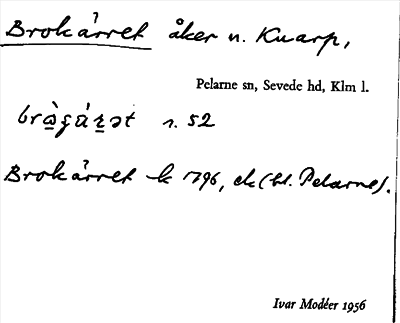 Brokärret åker n. Knarp,
Pelarne sn, Sevede hd, Klm l.
r. 52
Brokärret k 1796, ek (bl. Pelarne).
Ivar Modéer 1956